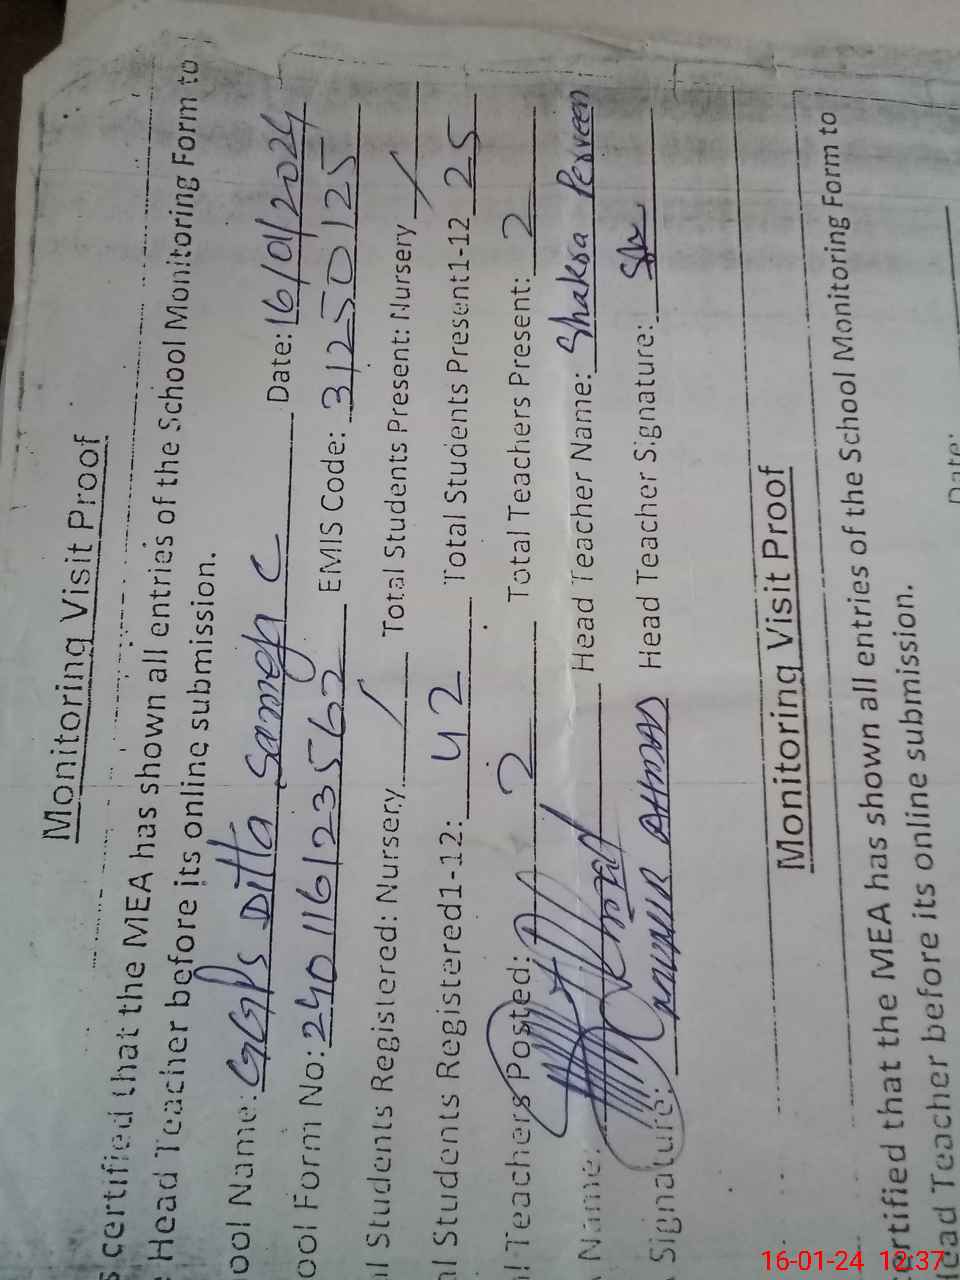 Monitoring Visit Proof
certified that the MEA has shown all entries of the School Monitoring Form to
Head Teacher before its online submission.
ool Name: GGPS Ditta Sameja C Date: 16/01/2024
ool Form No: 240116123562 EMIS Code: 31250125
al Students Registered: Nursery / Total Students Present: Nursery /
al Students Registered1-12: 42 Total Students Present1-12 25
l Teachers Posted: 2 Total Teachers Present: 2
Name: Head Teacher Name: Shaksa Perveen
Signature: MUNIR AHMAD Head Teacher Signature:
Monitoring Visit Proof
ertified that the MEA has shown all entries of the School Monitoring Form to
lead Teacher before its online submission.
Date:
16-01-24 12:37